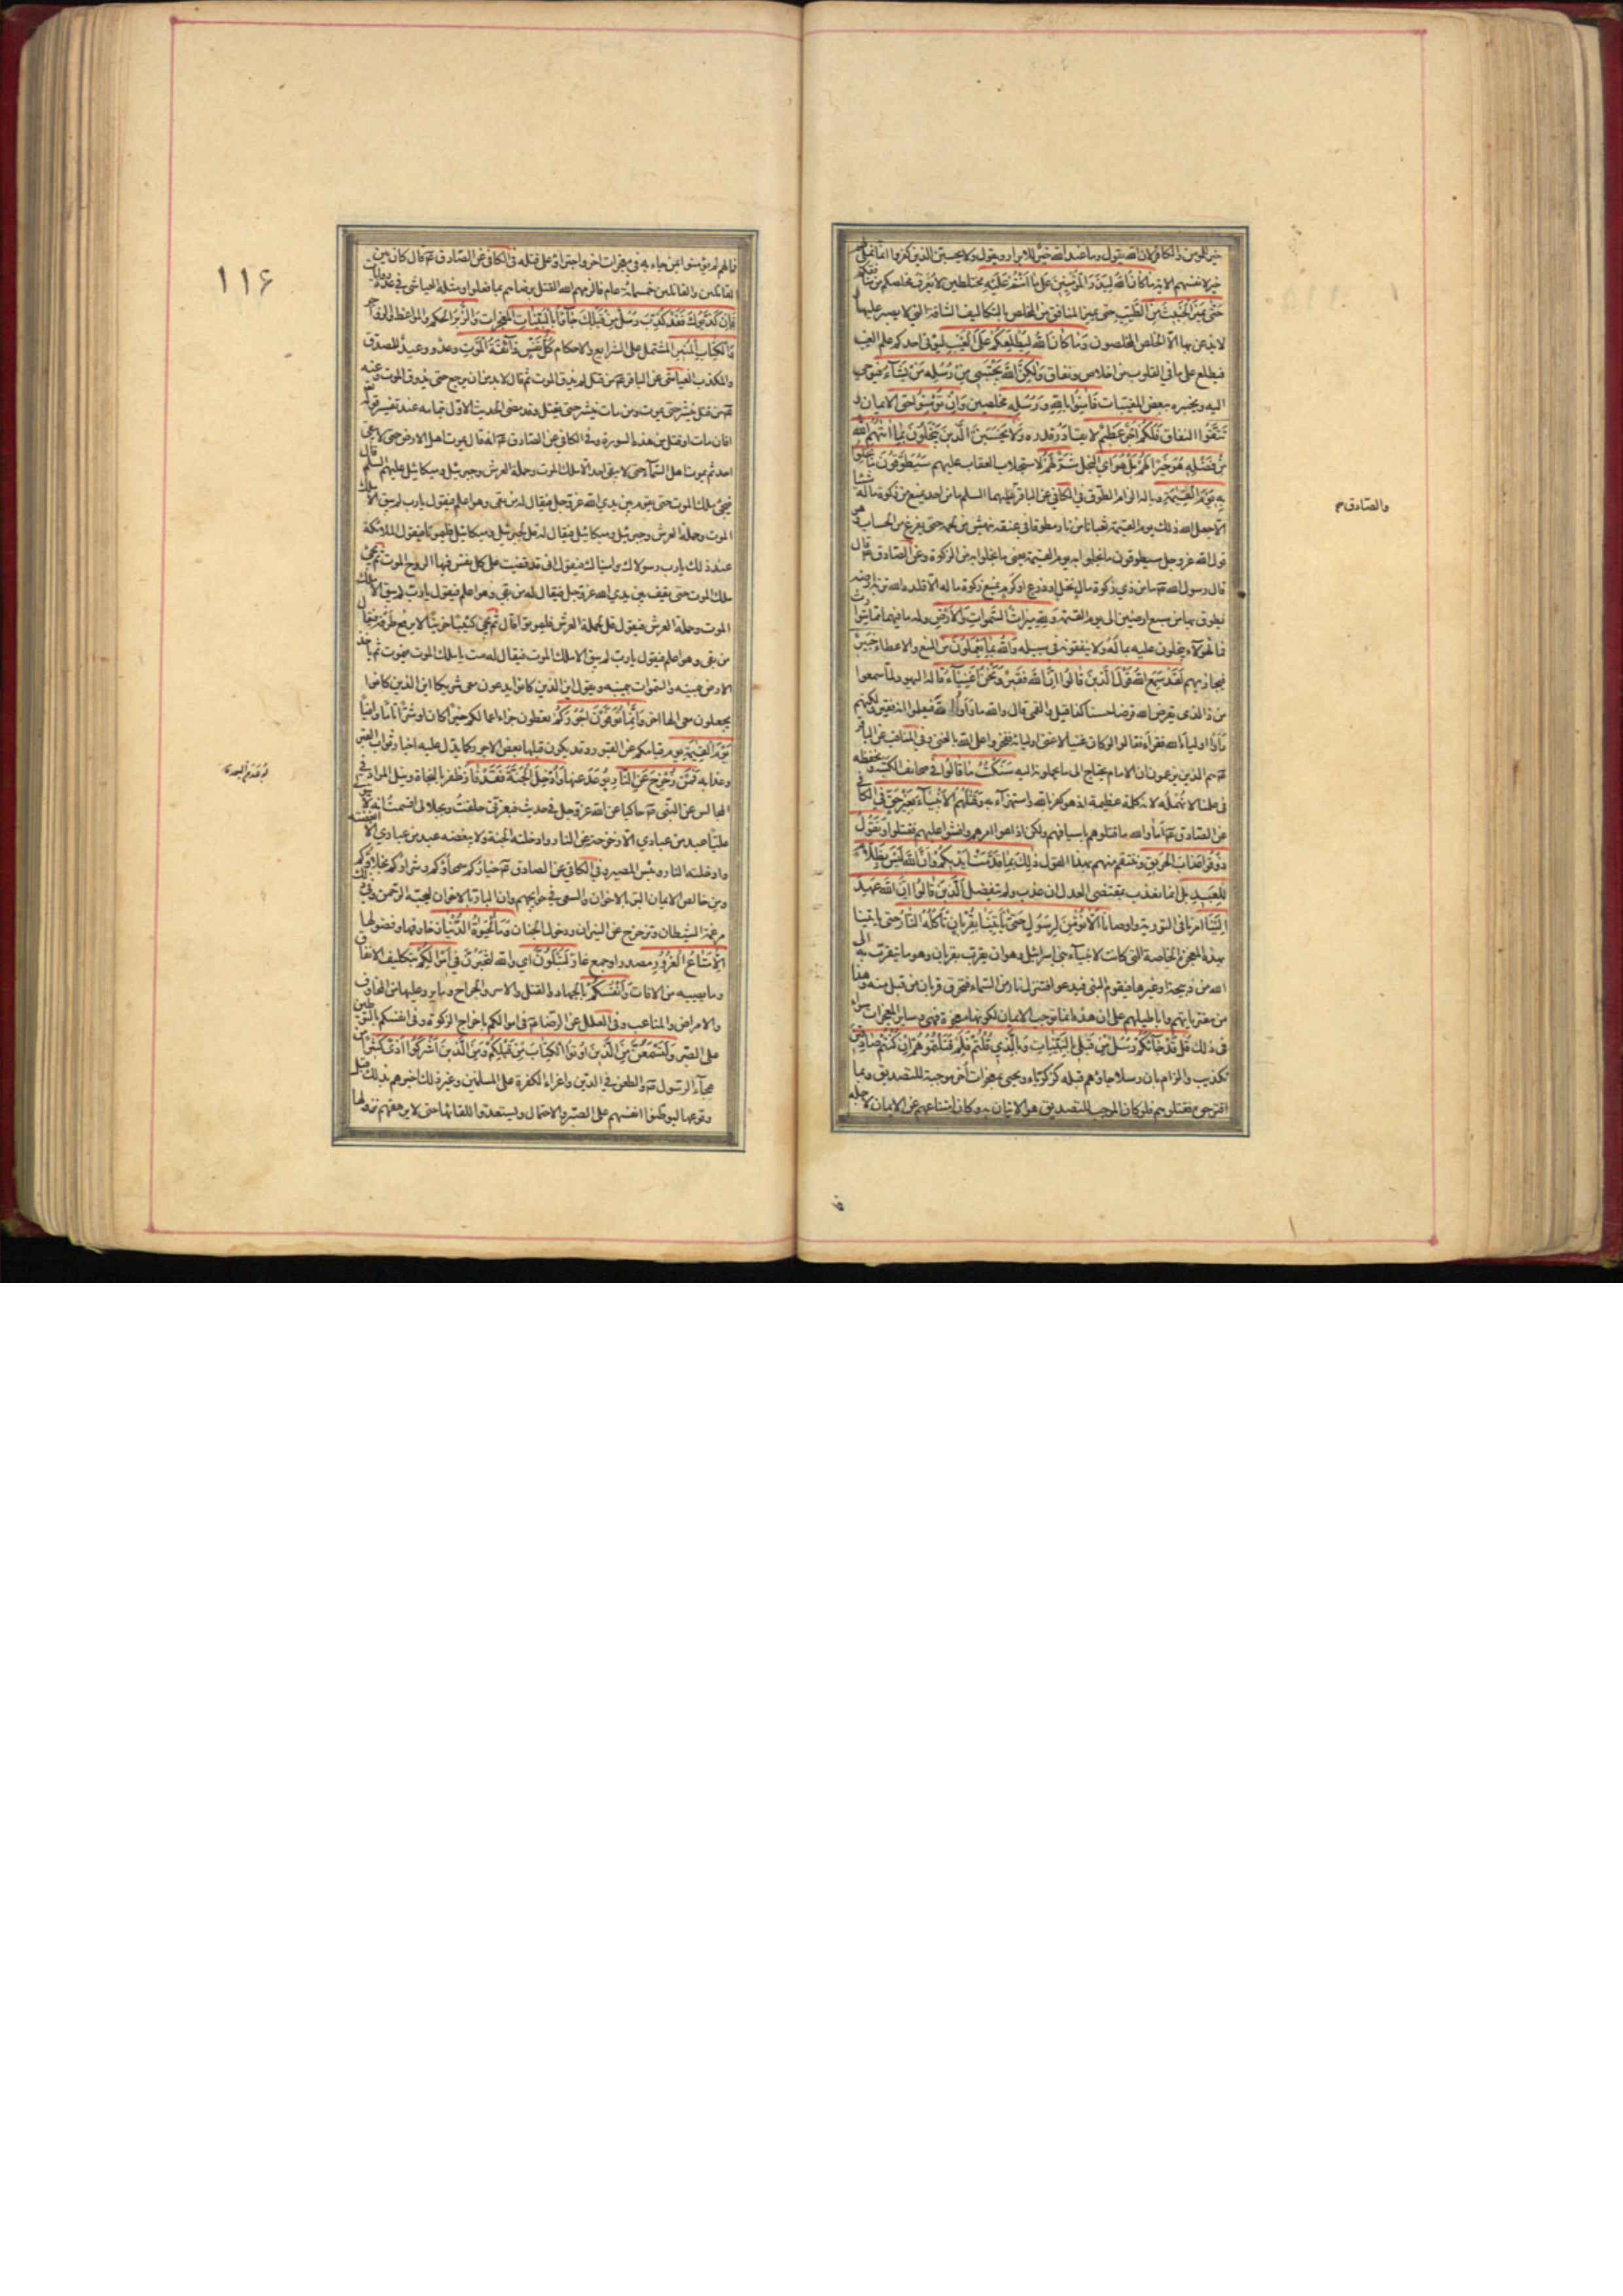 خير للمؤمن والكافر لان الله يقول وما عند الله خير للابرار ويقول ولا يحسبن الذين كفروا انما نملي لهم
خير لانفسهم الاية ما كان الله ليذر المؤمنين على ما انتم عليه مختلطين لا يعرف مخلصكم من منافقكم
حتى يميز الخبيث من الطيب حتى يميز المنافق من المخلص بالتكاليف الشاقة التي لا يصبر عليها
لا يذعن بها الا الخلص المخلصون وما كان الله ليطلعكم على الغيب ليؤتي احدكم علم الغيب
فيطلع على ما في القلوب من اخلاص ونفاق ولكن الله يجتبي من رسله من يشاء فيوحي
اليه ويخبره ببعض المغيبات فامنوا بالله ورسله مخلصين وان تؤمنوا حق الايمان و
تتقوا النفاق فلكم اجر عظيم لا يقادر قدره ولا يحسبن الذين يبخلون بما اتيهم الله
من فضله هو خيرا لهم بل هو اي البخل شر لهم لاستجلاب العقاب عليهم سيطوقون ما بخلوا
به يوم القيمة في الكافي عن الباقر عليهما السلم ما من احد يمنع من زكوة ماله شيئا
الا جعل الله ذلك يوم القيمة ثعبانا من نار مطوقا في عنقه ينهش من لحمه حتى يفرغ من الحساب هو
قول الله عز وجل سيطوقون ما بخلوا به يوم القيمة يعني ما بخلوا به من الزكوة وعن الصادق ع قال
قال رسول الله ص ما من ذي زكوة مال نخل او زرع او كرم يمنع زكوة ماله الا قلده الله تربة ارضه
يطوق بها من سبع ارضين الى يوم القيمة ولله ميراث السموات والارض وله ما فيهما مما يتوارث
فما لهؤلاء يبخلون عليه بماله ولا ينفقونه في سبيله والله بما تعملون من المنع والاعطاء خبير
فيجازيهم لقد سمع الله قول الذين قالوا ان الله فقير ونحن اغنياء قاله اليهود لما سمعوا
من ذا الذي يقرض الله قرضا حسنا كذا قيل والقمي قال والله ما راوا الله فيعلموا انه فقير ولكنهم
راوا اولياء الله فقراء فقالوا لو كان غنيا لاغنى اولياءه ففخروا على الله بالغنى وفي المناقب عن الباقر
ع هم الذين يزعمون ان الامام يحتاج الى ما يحملونه اليه سنكتب ما قالوا في صحايف الكتبة او نحفظه
في علمنا لا نهمله لانه كلمة عظيمة اذ هو كفر بالله واستهزاء به وقتلهم الانبياء بغير حق في الكافي
عن الصادق ع اما والله ما قتلوهم باسيافهم ولكن اذاعوا امرهم وافشوا عليهم فقتلوا ونقول
ذوقوا عذاب الحريق وننتقم منهم بهذا القول ذلك بما قدمت ايديكم وان الله ليس بظلام
للعبيد بل انما يعذب بمقتضى العدل ان عذب ولم يتفضل الذين قالوا ان الله عهد
الينا امرنا في التورية واوصانا الا نؤمن لرسول حتى ياتينا بقربان تاكله النار حتى ياتينا
بهذه المعجزة الخاصة التي كانت لانبياء بني اسرائيل وهو ان يقرب بقربان وهو ما يتقرب به الى
الله من ذبيحة او غيرها فيقوم النبي فيدعو فتنزل نار من السماء فتحرق قربان من قبل منه وهذا
من مفترياتهم واباطيلهم على ان هذا انما يوجب الايمان لكونها معجزة فهي وساير المعجزات سواء
في ذلك قل قد جاءكم رسل من قبلي بالبينات وبالذي قلتم فلم قتلتموهم ان كنتم صادقين
تكذيب والزام بان رسلا جاؤهم قبله كزكريا ويحيى بمعجزات اخر موجبة للتصديق وبما
اقترحوه فقتلوهم فلو كان الموجب للتصديق هو الاتيان به وكان امتناعهم عن الايمان لاجله
والصادق ع
١١۶
فما لهم لم يؤمنوا بمن جاء به في معجزات اخر واجتراوا على قتله في الكافي عن الصادق ع قال كان بين
القاتلين والقائلين خمسمائة عام فالزمهم الله القتل برضاهم بما فعلوا ومثله العياشي في عدة روايات
فان كذبوك فقد كذب رسل من قبلك جاؤا بالبينات المعجزات والزبر الحكم والمواعظ والزواجر
والكتاب المنير المشتمل على الشرايع والاحكام كل نفس ذائقة الموت وعد ووعيد للمصدق
والمكذب العياشي عن الباقر ع من قتل لم يذق الموت ثم قال لا بد من ان يرجع حتى يذوق الموت وعنه
ع من قتل ينشر حتى يموت ومن مات ينشر حتى يقتل وقد مضى الحديث الاول بتمامه عند تفسير قوله
افان مات او قتل من هذه السورة وفي الكافي عن الصادق ع انه قال يموت اهل الارض حتى لا يبقى
احد ثم يموت اهل السماء حتى لا يبقى احد الا ملك الموت وحملة العرش وجبرئيل وميكائيل عليهم السلم قال
فيجيء ملك الموت حتى يقوم بين يدي الله عز وجل فيقال له من بقي وهو اعلم فيقول يا رب لم يبق الا ملك
الموت وحملة العرش وجبرئيل وميكائيل فيقال له قل لجبرئيل وميكائيل فليموتا فيقول الملائكة
عند ذلك يا رب رسولاك وامينك فيقول اني قد قضيت على كل نفس فيها الروح الموت ثم يجيء
ملك الموت حتى يقف بين يدي الله عز وجل فيقال له من بقي وهو اعلم فيقول يا رب لم يبق الا ملك
الموت وحملة العرش فيقول قل لحملة العرش فليموتوا قال ثم يجيء كئيبا حزينا لا يرفع طرفه فيقال
من بقي وهو اعلم فيقول يا رب لم يبق الا ملك الموت فيقال له مت يا ملك الموت فيموت ثم ياخذ
الارض بيمينه والسموات بيمينه ويقول اين الذين كانوا يدعون معي شريكا اين الذين كانوا
يجعلون معي الها اخر وانما توفون اجوركم تعطون جزاء اعمالكم خيرا كان او شرا تاما وافيا
يوم القيمة يوم قيامكم عن القبور وقد يكون قبلها بعض الاجور كما يدل عليه اخبار ثواب القبر
وعذابه فمن زحزح عن النار بوعد عنها وادخل الجنة فقد فاز ظفر بالنجاة ونيل المراد في
المجالس عن النبي ص حاكيا عن الله عز وجل في حديث فبعزتي حلفت وبجلالي اقسمت انه لا يتولى
عليا عبد من عبادي الا زحزحته عن النار وادخلته الجنة ولا يبغضه عبد من عبادي الا ابغضته
وادخلته النار وبئس المصير وفي الكافي عن الصادق ع خياركم سمحاؤكم وشراركم بخلاؤكم
ومن خالص الايمان البر بالاخوان والسعي في حوايجهم وان البار بالاخوان ليحبه الرحمن وفي ذلك
مرغمة الشيطان وتزحزح عن النيران ودخول الجنان وما الحيوة الدنيا وزخارفها وفضولها
الا متاع الغرور مصدر او جمع غار لتبلون اي والله لتختبرن في اموالكم بتكاليف الانفاق
وما يصيبه من الافات وانفسكم بالجهاد والقتل والاسر والجراح وما يرد عليها من المخاوف
والامراض والمتاعب وفي العلل عن الرضا ع في اموالكم باخراج الزكوة وفي انفسكم بالتوطين
على الصبر ولتسمعن من الذين اوتوا الكتاب من قبلكم ومن الذين اشركوا اذى كثيرا من
هجاء الرسول ص والطعن في الدين واغراء الكفرة على المسلمين وغير ذلك اخبرهم بذلك قبل
وقوعها ليوطنوا انفسهم على الصبر والاحتمال ويستعدوا للقائها حتى لا يرهقهم نزولها